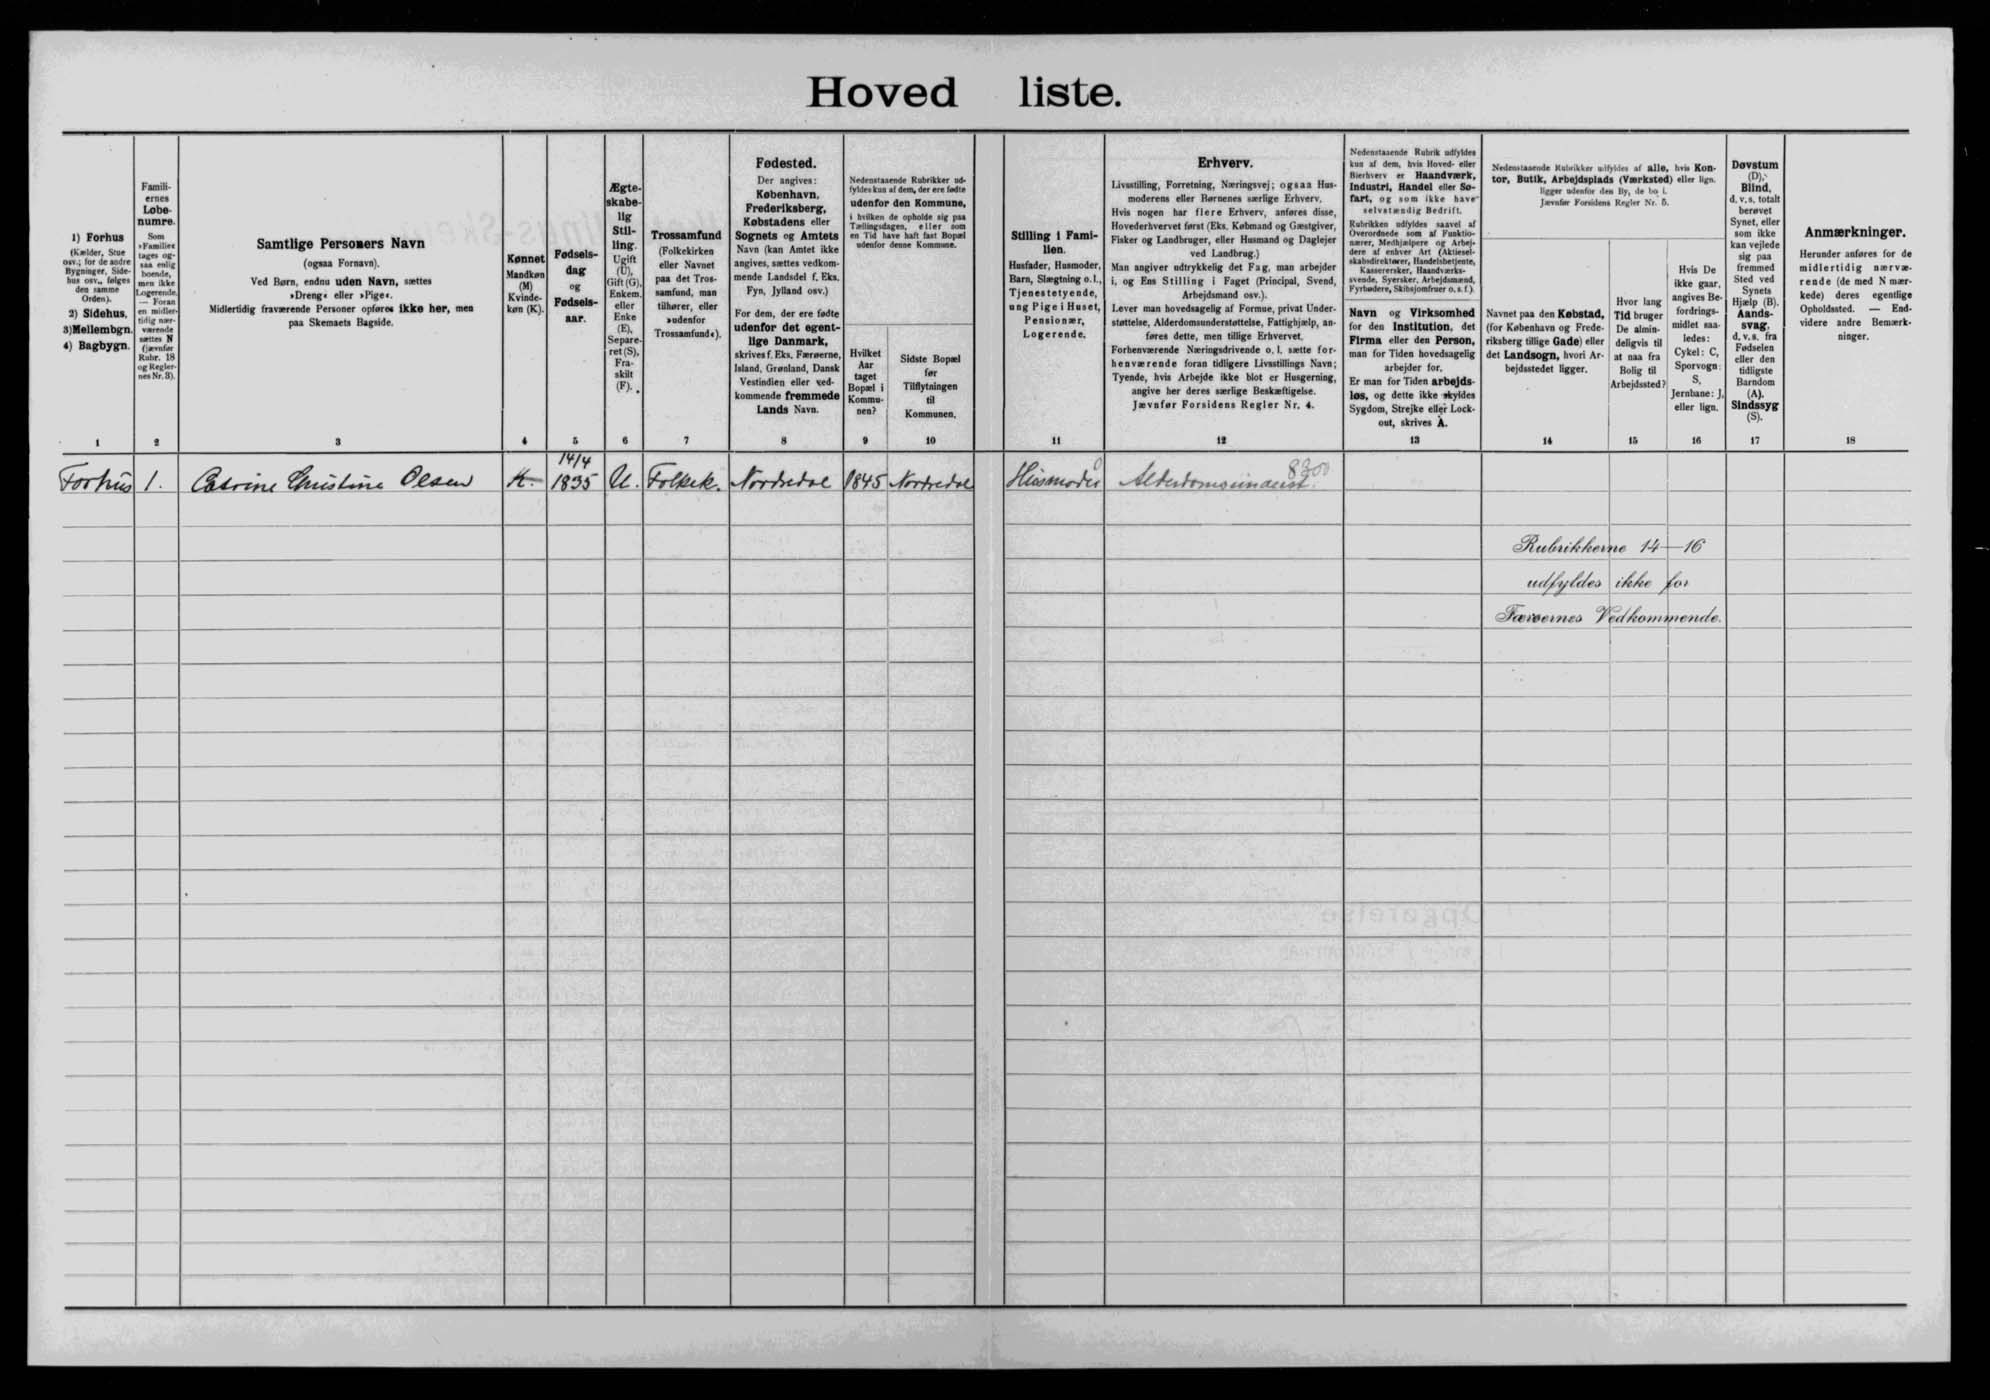 Hoved liste.
1) Forhus
(Kælder, Stue
osv.; for de andre
Bygninger, Side-
hus osv., følges
den samme
Orden).
2) Sidehus,
3) Mellembgn.
4) Bagbygn.
1
Famili-
ernes
Løbe-
numre.
Som
»Familie«
tages og-
saa enlig
boende,
men ikke
Logerende.
— Foran
en midler-
tidig nær-
værende
sættes N
(jævnfør
Rubr. 18
og Regler-
nes Nr. 3).
2
Samtlige Personers Navn
(ogsaa Fornavn).
Ved Børn, endnu uden Navn, sættes
»Dreng« eller »Pige«.
Midlertidig fraværende Personer opføres ikke her, men
paa Skemaets Bagside.
3
Kønnet
Mandkøn
(M)
Kvinde-
køn (K).
4
Fødsels-
dag
og
Fødsels-
aar.
5
Ægte-
skabe-
lig
Stil-
ling.
Ugift
(U),
Gift (G),
Enkem.
eller
Enke
(E),
Separe-
ret (S),
Fra-
skilt
(F).
6
Trossamfund
(Folkekirken
eller Navnet
paa det Tros-
samfund, man
tilhører, eller
»udenfor
Trossamfund«).
7
Fødested.
Der angives:
København,
Frederiksberg,
Købstadens eller
Sognets og Amtets
Navn (kan Amtet ikke
angives, sættes vedkom-
mende Landsdel f. Eks.
Fyn, Jylland osv.)
For dem, der ere fødte
udenfor det egent-
lige Danmark,
skrives f. Eks. Færøerne,
Island, Grønland, Dansk
Vestindien eller ved-
kommende fremmede
Lands Navn.
8
Nedenstaaende Rubrikker ud-
fyldes kus af dem, der ere fødte
udenfor den Kommune,
i hvilken de opholde sig paa
Tællingsdagen, eller som
en Tid have haft fast Bopæl
udenfor denne Kommune.
Hvilket
Aar
taget
Bopæl i
Kommu-
nen?
9
Sidste Bopæl
før
Tilflytningen
til
Kommunen.
10
Stilling i Fami-
lien.
Husfader, Husmoder,
Barn, Slægtning o. l.,
Tjenestetyende,
ung Pige i Huset,
Pensionær,
Logerende.
11
Erhverv.
Livsstilling, Forretning, Næringsvej; ogsaa Hus-
moderens eller Børnenes særlige Erhverv.
Hvis nogen har flere Erhverv, anføres disse,
Hovederhvervet først (Eks. Købmand og Gæstgiver,
Fisker og Landbruger, eller Husmand og Daglejer
ved Landbrug.)
Man angiver udtrykkelig det Fag, man arbejder
i, og Ens Stilling i Faget (Principal, Svend,
Arbejdsmand osv.).
Lever man hovedsagelig af Formue, privat Under-
støttelse, Alderdomsunderstøttelse, Fattighjælp, an-
føres dette, men tillige Erhvervet.
Forhenværende Næringsdrivende o. l. sætte for-
henværende foran tidligere Livsstillings Navn;
Tyende, hvis Arbejde ikke blot er Husgerning,
angive her deres særlige Beskæftigelse.
Jævnfør Forsidens Regler Nr. 4.
12
Nedenstaaende Rubrik udfyldes
kus af dem, hvis Hoved- eller
Bierhverv er Haandværk,
Industri, Handel eller Sø-
fart, og som ikke have
selvstændig Bedrift.
Rubrikken udfyldes saavel af
Overordnede som af Funktio-
nærer, Medhjælpere og Arbej-
dere af enhver Art (Aktiesel-
skabsdirektører, Handelsbetjente,
Kassererskер, Haandværks-
svende, Syersker, Arbejdsmænd,
Fyrbødere, Skibsjomfruer o. s. f.).
Navn og Virksomhed
for den Institution, det
Firma eller den Person,
man for Tiden hovedsagelig
arbejder for.
Er man for Tiden arbejds-
løs, og dette ikke skyldes
Sygdom, Strejke eller Lock-
out, skrives A.
13
Nedenstaaende Rubrikker udfyldes af alle, hvis Kon-
tor, Butik, Arbejdsplads (Værksted) eller lign.
ligger udenfor den By, de bo i.
Jævnfør Forsidens Regler Nr. 5.
Navnet paa den Købstad,
(for København og Frede-
riksberg tillige Gade) eller
det Landsogn, hvori Ar-
bejdsstedet ligger.
14
Hvor lang
Tid bruger
De almin-
deligvis til
at naa fra
Bolig til
Arbejdssted?
15
Hvis De
ikke gaar,
angives Be-
fordrings-
midlet saa-
ledes:
Cykel: C,
Sporvogn:
S,
Jernbane: J,
eller lign.
16
Døvstum
(D),
Blind,
d. v. s. totalt
berøvet
Synet, eller
som ikke
kan vejlede
sig paa
fremmed
Sted ved
Synets
Hjælp (B).
Aands-
svag,
d. v. s. fra
Fødselen
eller den
tidligste
Barndom
(A).
Sindssyg
(S).
17
Anmærkninger.
Herunder anføres for de
midlertidig nærvæ-
rende (de med N mær-
kede) deres egentlige
Opholdssted. — End-
videre andre Bemærk-
ninger.
18
Forhus 1. Catrine Christine Olsen K. 14/4 1835 U. Folkek. Nordredal 1845 Nordredal Husmoder Alderdomsunderst. 8300
Rubrikkerne 14—16
udfyldes ikke for
Færøernes Vedkommende.